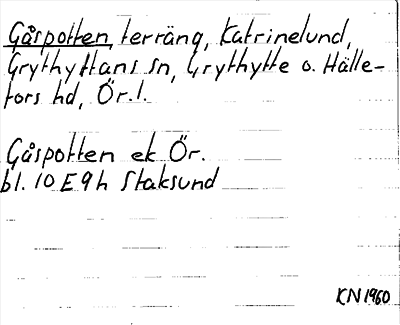 Gåspotten, terräng, Katrinelund,
Grythyttans sn, Grythytte o. Hälle-
fors hd, Ör.l.
Gåspotten ek Ör.
bl. 10 E 9 h Staksund
KN 1960